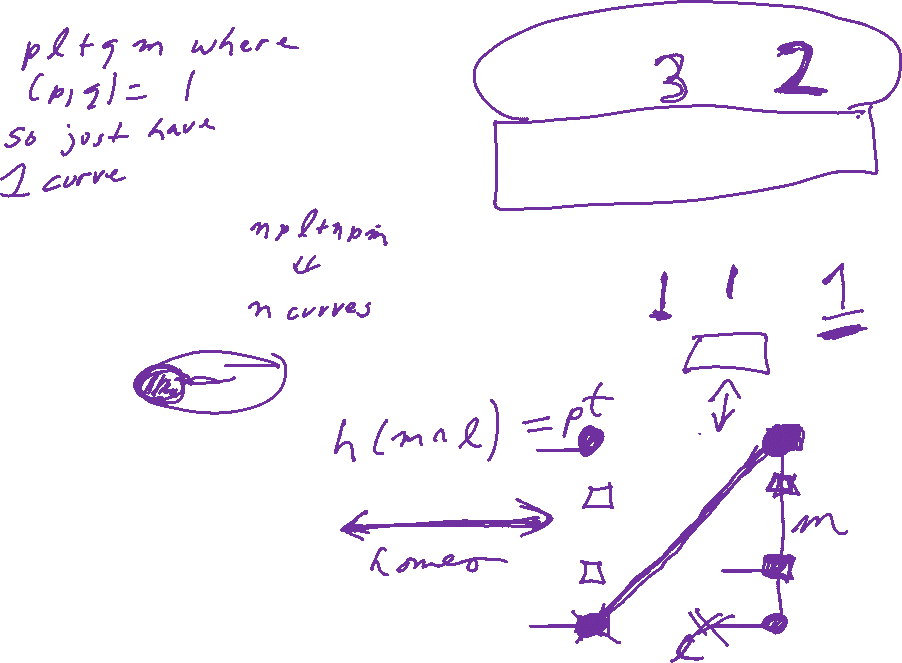 pl+qm where
(p,q)= 1
so just have
1 curve
3 2
npl+npm
n curves
1 1 1
h(m∩l) = pt
m
homeo
l